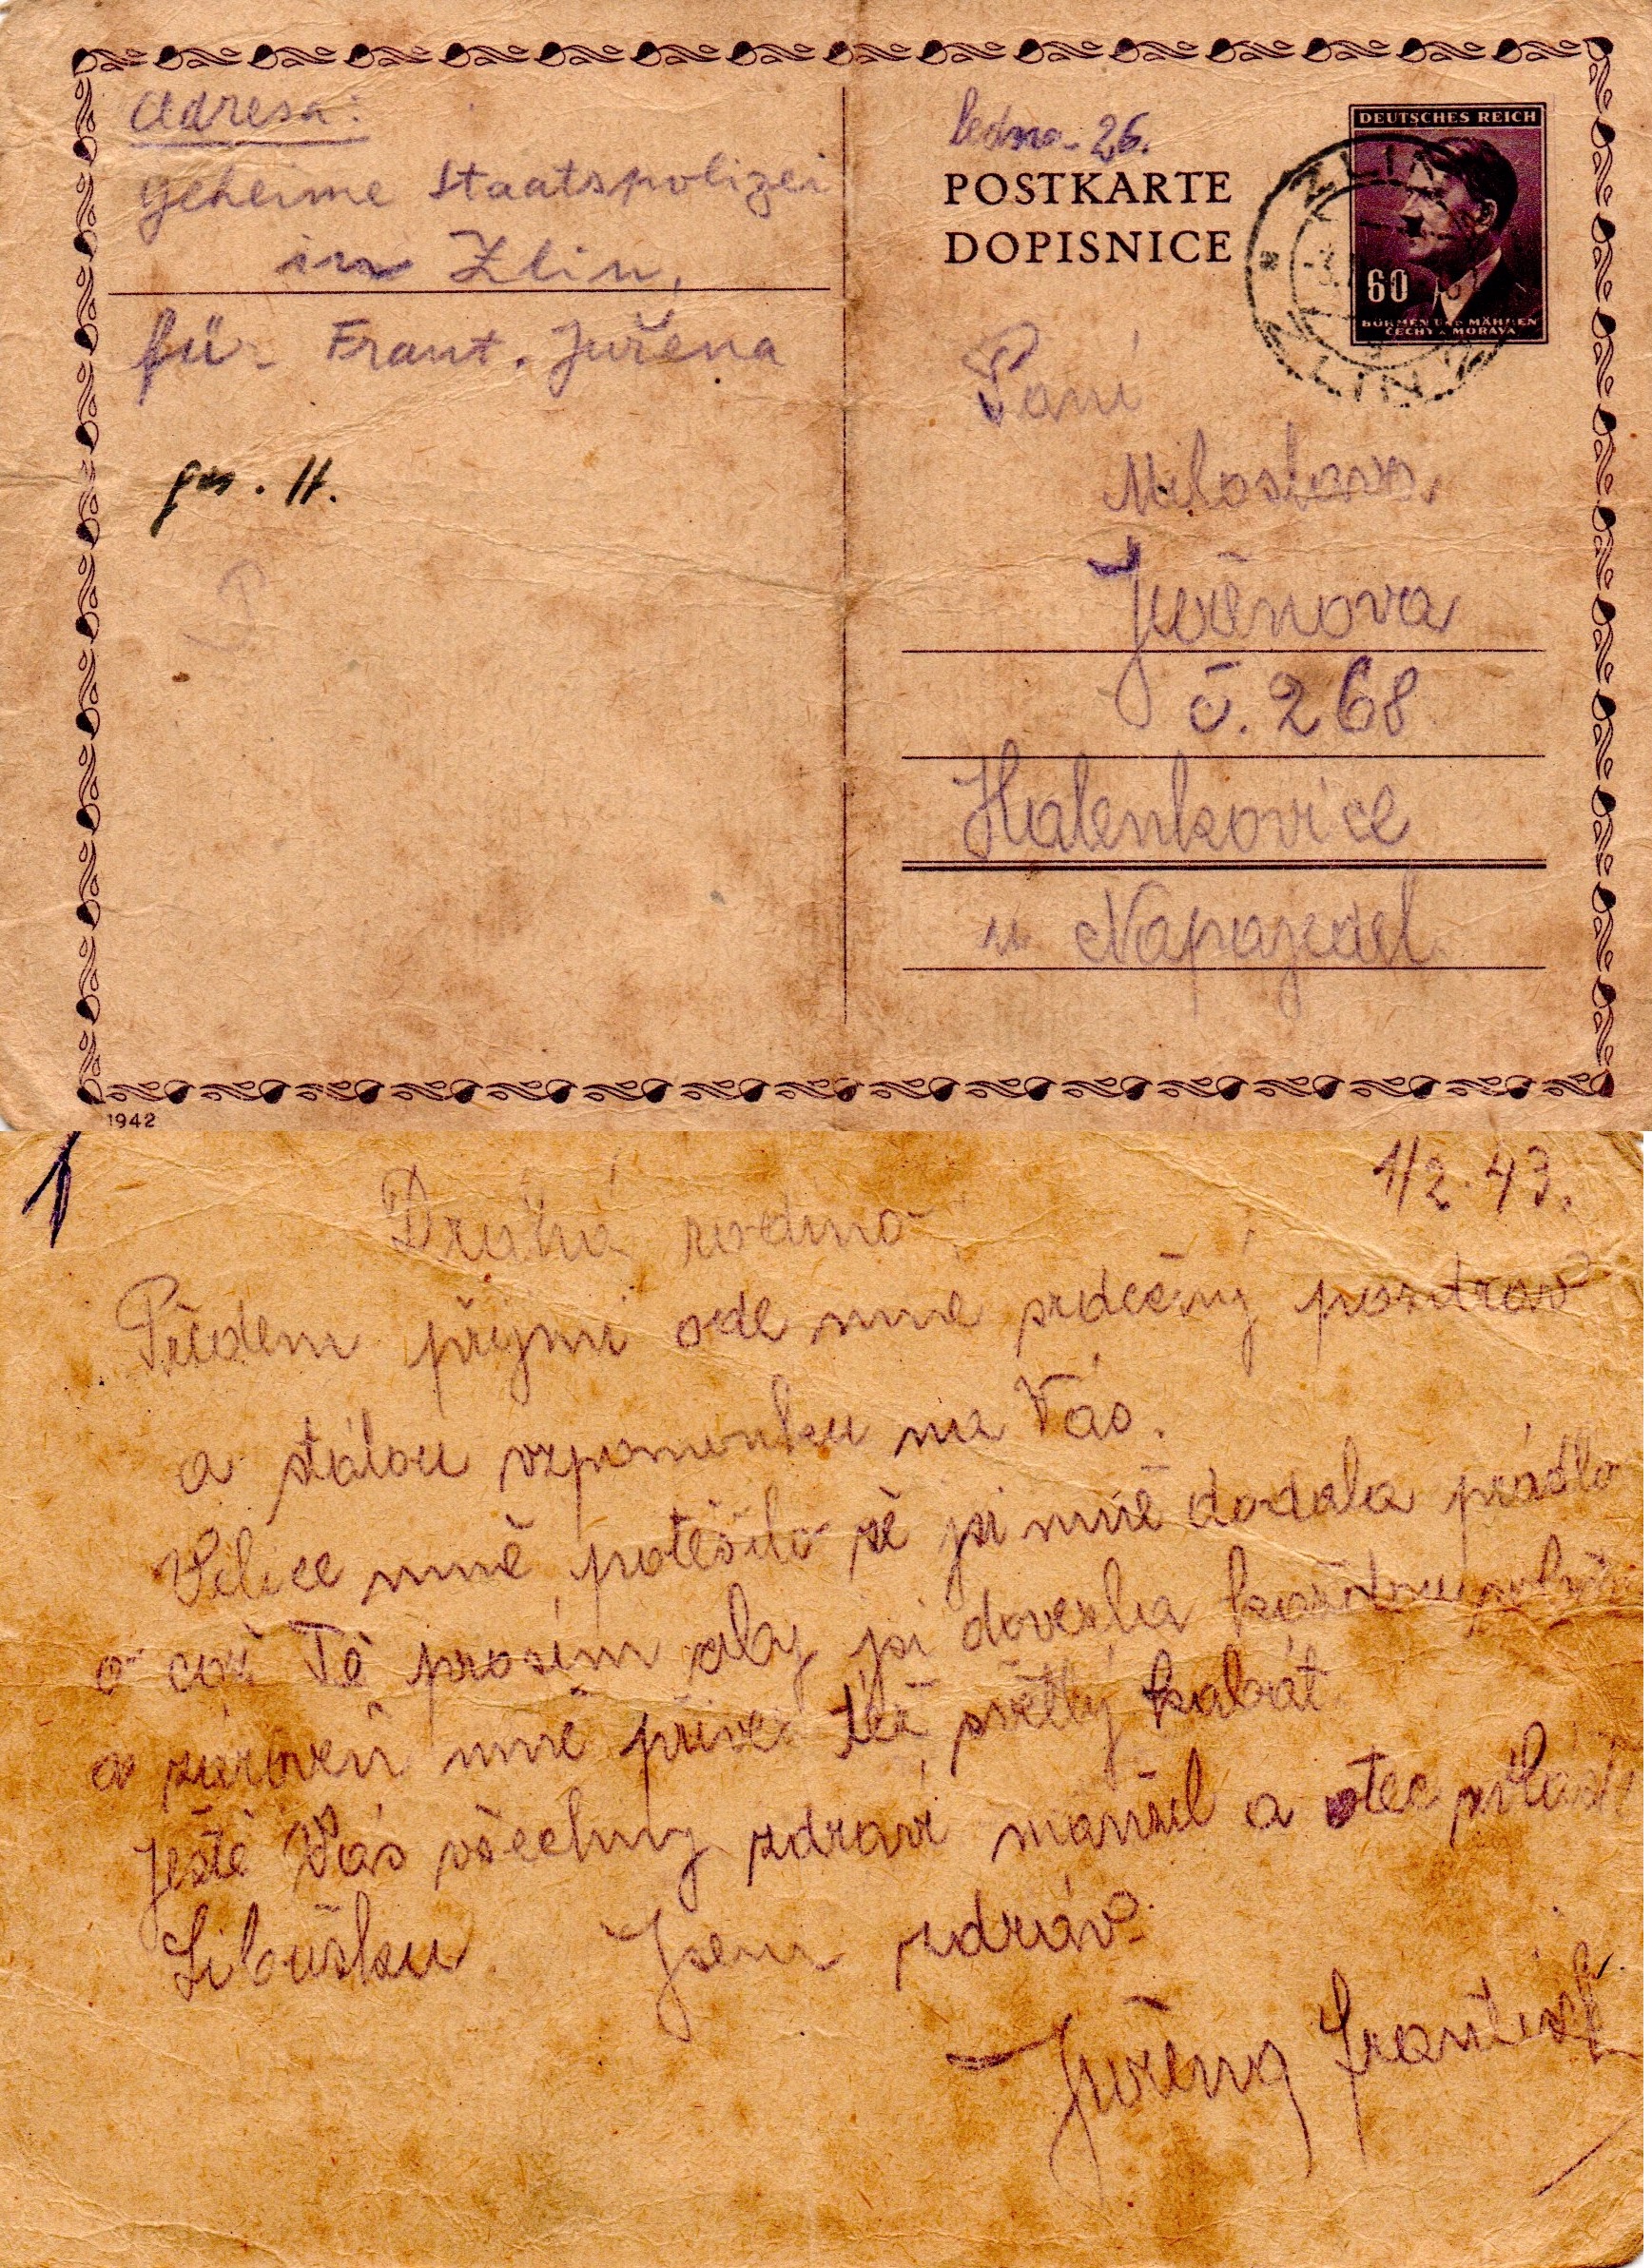 Adresa:
Geheime Staatspolizei
in Zlin,
für Frant. Juřena
ges. H.
ledna 26.
POSTKARTE
DOPISNICE
DEUTSCHES REICH
60
BÖHMEN UND MÄHREN
ČECHY A MORAVA
ZLIN
ZLIN
Paní
Miloslava
Juřenova
č. 268
Halenkovice
u Napajedel
1942
1
1/2. 43.
Drahá rodino!
Předem přijmi ode mně srdečný pozdrav
a stálou vzpomenku na Vás.
Velice mně potěšilo že jsi mně dodala prádlo
o což Tě prosím aby jsi dovezla každou
a zároveň mně přivez též světlý kabát
Ještě Vás všechny zdraví manžel a otec zvláště
Libušku Jsem zdráv.
Juřena František